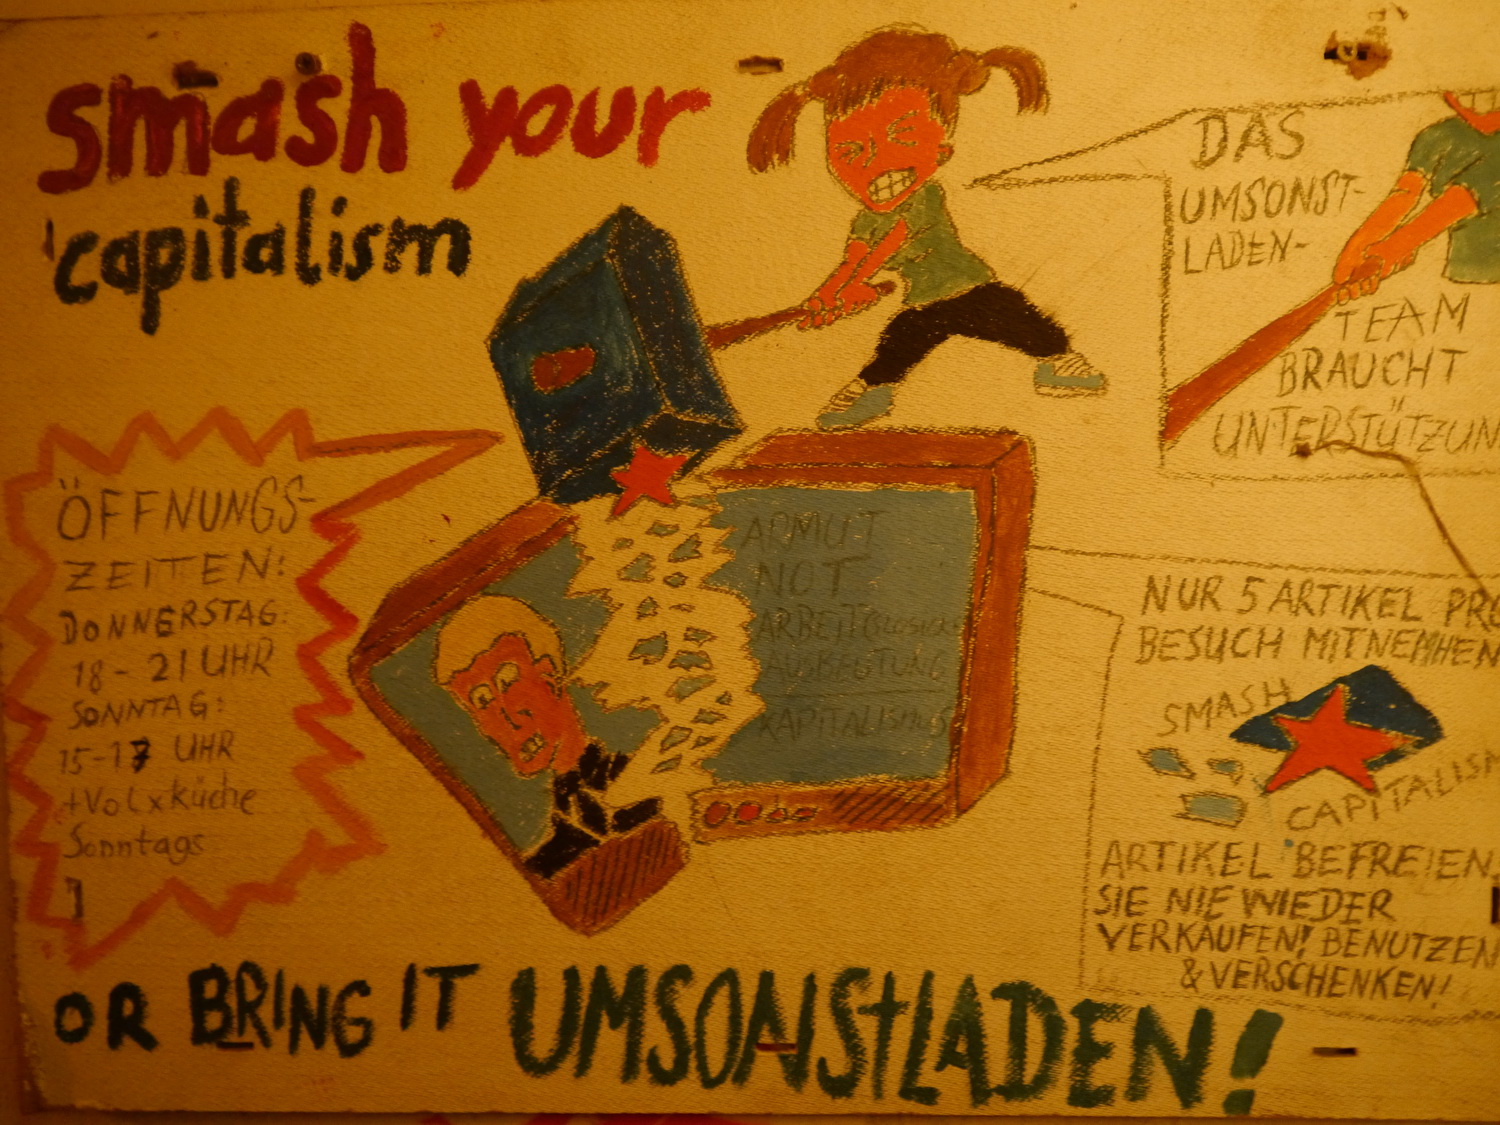 smash your
capitalism
DAS
UMSONST-
LADEN-
TEAM
BRAUCHT
UNTERSTÜTZUN
ÖFFNUNGS-
ZEITEN:
DONNERSTAG:
18 - 21 UHR
SONNTAG:
15-17 UHR
+Volxküche
Sonntags
ARMUT
NOT
AUSBEUTUNG
KAPITALISMUS
NUR 5 ARTIKEL PRO
BESUCH MITNEMHEN
SMASH
CAPITALISM
ARTIKEL BEFREIEN,
SIE NIE WIEDER
VERKAUFEN! BENUTZEN
& VERSCHENKEN!
OR BRING IT UMSONStLADEN!